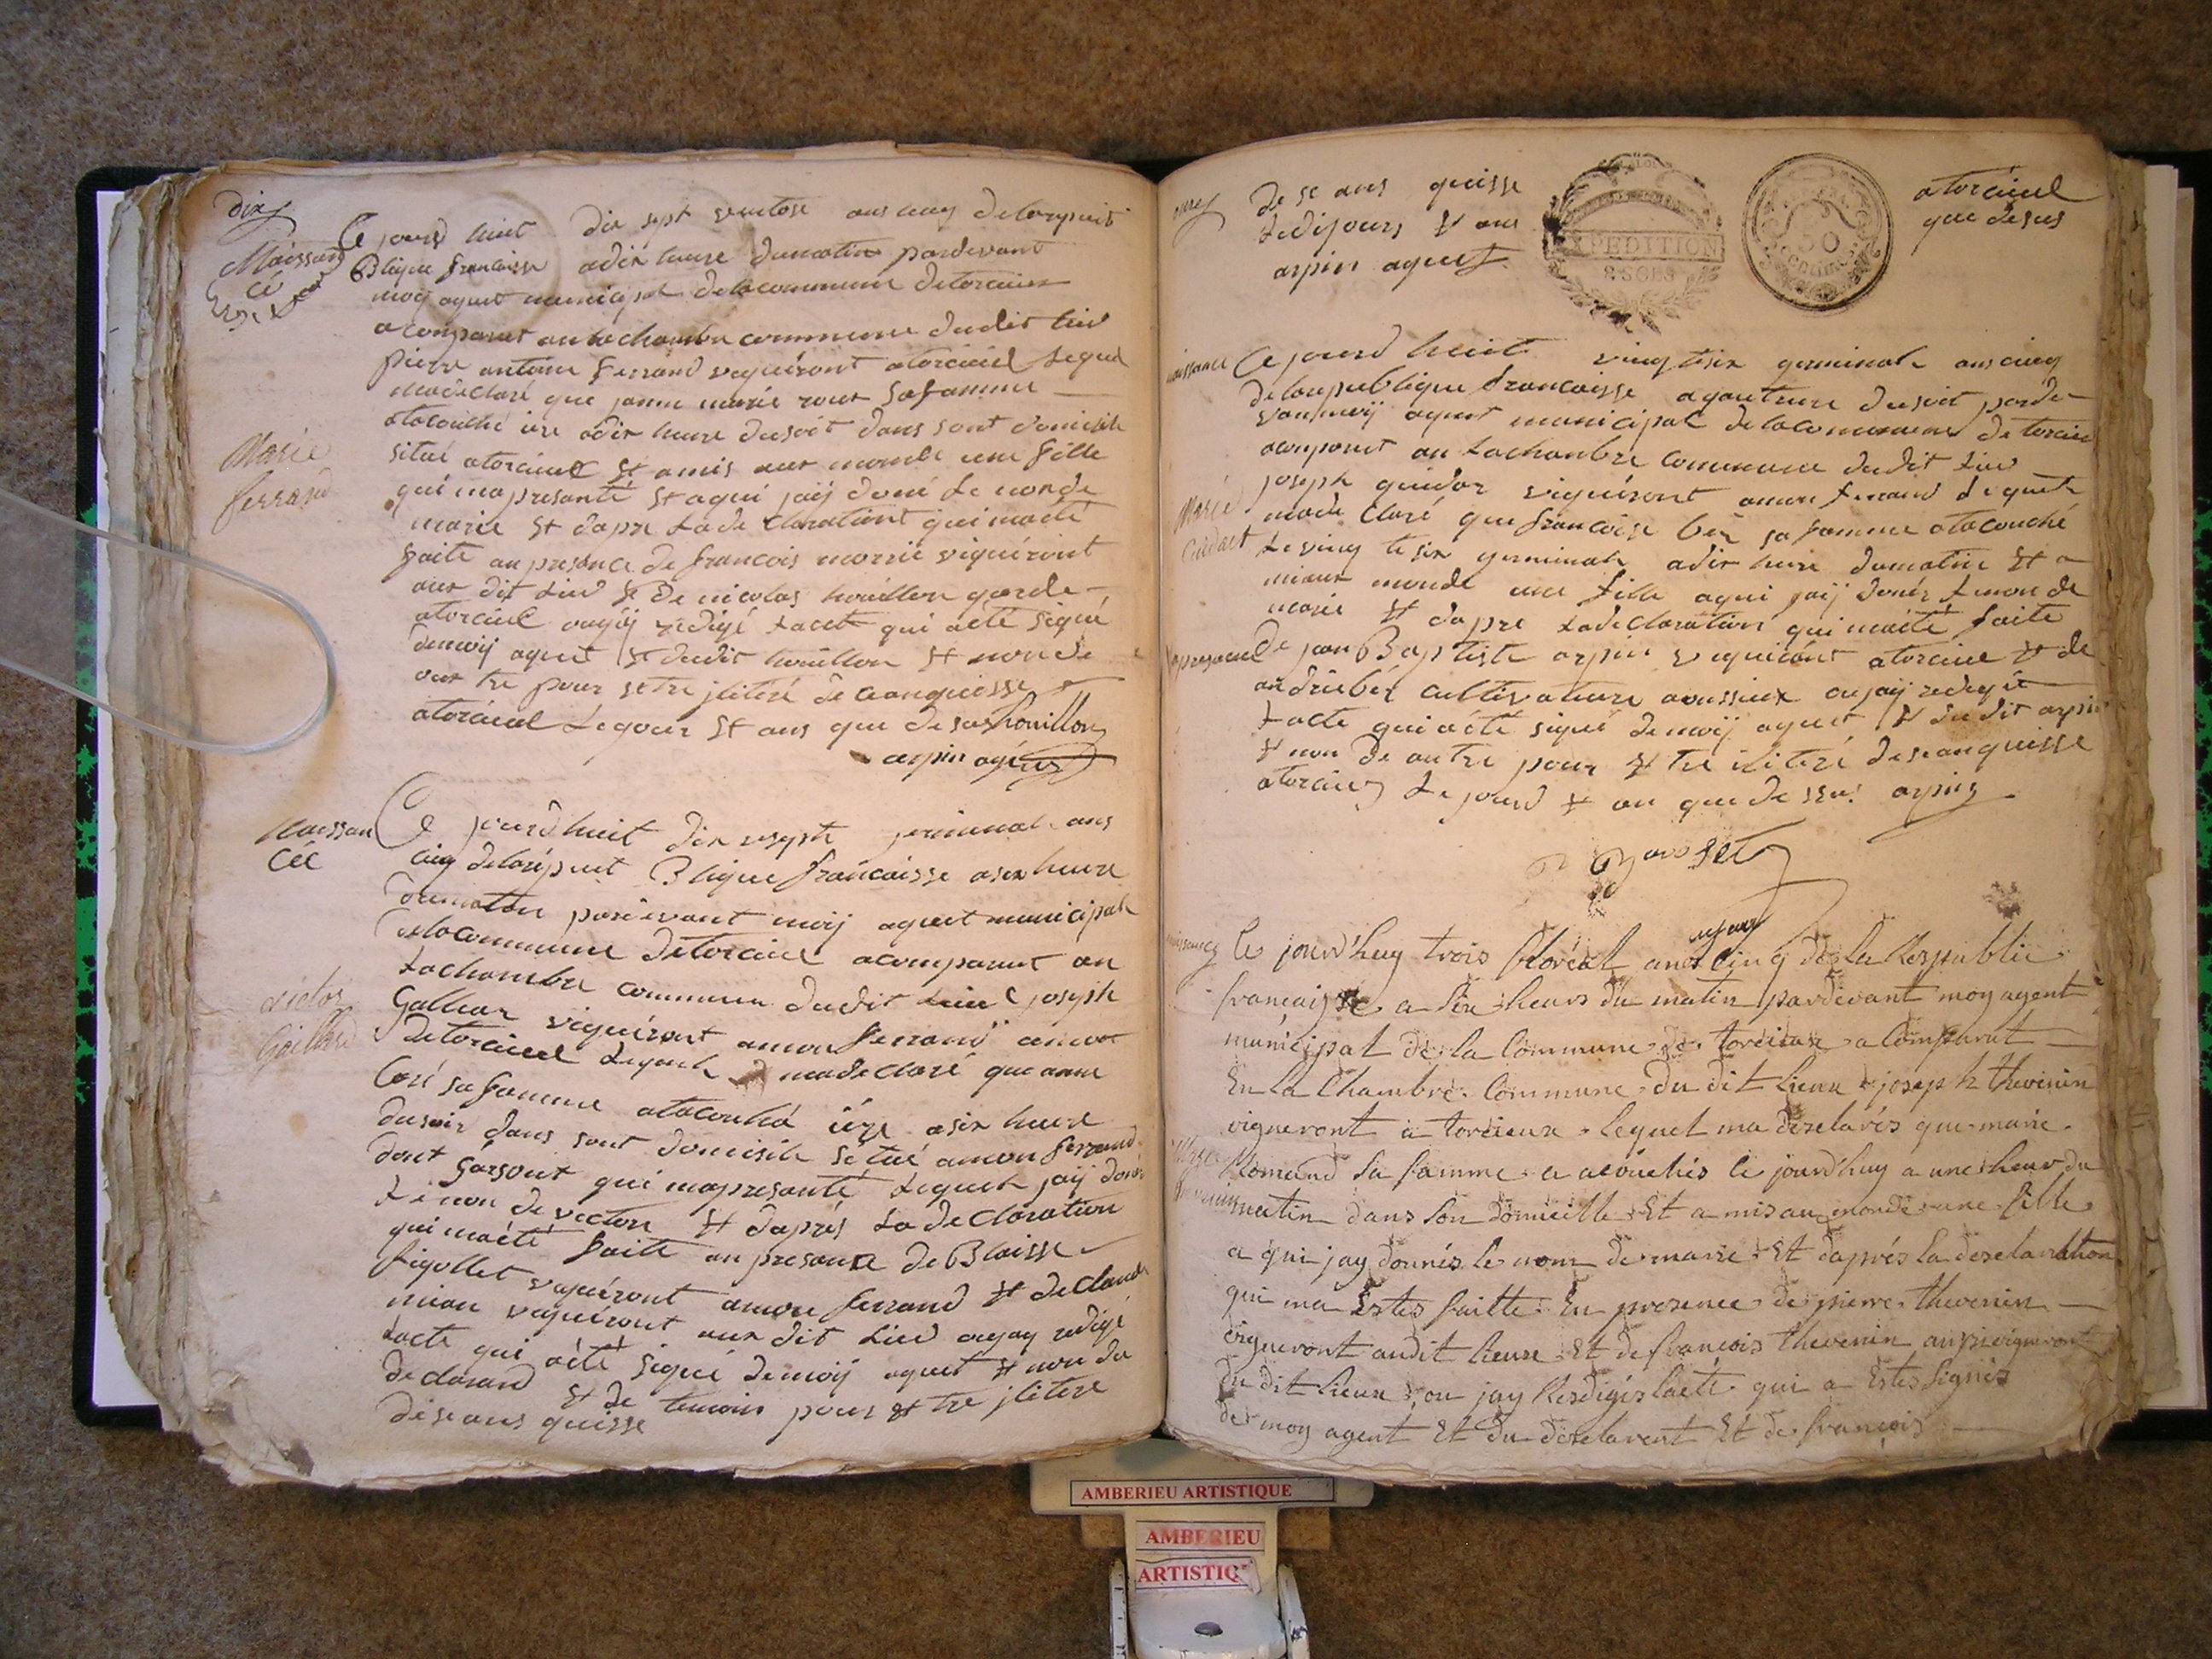 dix
Naissan
cé
Ce jourd huit dix sept ventose ans cinq delarepuit
Blique francaisse adix heure dumatin pardevant
moij agent municipal delacommune detorcieu
acomparut an lachambre commune dudit lieu
pierre antoine ferrand vigniéront atorcieul lequel
madeclaré que janne marie roux safamme
atacouché ier adix heure dusoit dans sont domicile
situé atorcieul et amis aux monde une fille
qui mapresanté et aqui jaij doné le nonde
marie et dapre lade clarationt qui maeté
faite anpresance de francois morrié vigniéront
aux dit lieu et De nicolas houillon garde
atorcieul oujaij redigé lacte qui aeté signé
demoij agent et dudit houillon et nonde
autre pour etre iliteré de ceanquisse
atorcieul lejour et ans que desus houillon
arpin agent
Marie
ferrand
Naissan
Céé
Ce jourdhuit dix sept germinal ans
cinq delarépuit Blique francaisse asix heure
dumatin pardevant moij agent municipale
delacommune detorcieul acomparut an
lachambre commune dudit lieu joseph
Galliar vigniéront amon ferrand
detorcieul lequel madeclaré que anne
safamme atacouché iére asix heure
dusoir dans sont domicile setué amon ferrand
dont garsont qui mapresanté lequel jaij doné
le non de victor et daprés ladeclaration
qui maété faite anpresance de Blaisse
figullet vigniéront amon ferrand et declaude
vigniéront aux dit lieu oujay redigé
lacte qui aété signé demoij agent et non du
declarand et de temoin pour etre iliteré
deseans quisse
victor
Gailliard
onze
de se ans quisse
ledijours et ans
arpin agent
EXPEDITION
8 SOLS
50
atorcieul
que desus
naissance
Ce jourd huit vingtesix germinale ans cinq
delarepublique francaisse aquatreure dusoit parde
vanmoij agent municipal delacommune detorcieu
acomparut an lachambre commune dudit lieu
joseph guidar vigniéront amon ferrand lequel
made claré que francoise bér sa famme atacouché
levingtesix germinale adix heure dumatin et a
miaux monde une fille aqui jaij donér lenon de
marie et dapre ladeclaration qui maété faite
apresance de jean Baptiste arpin vigniéront atorcieu et de
andriebér cultivateure aoussieux oujaij redegé
lacte quiaété signé demoij agent et dudit arpin
et non de autre pour etre iliteré deseanquisse
atorcieu le jourd et an que dessus arpin
Marie
Guidart
naissance
Ce jourd'huy trois floréal ans cinq de la Respublic
francaisse a six heurs du matin pardevant moy agent
municipal de la Commune de torcieux a Comparut
En la Chambre Commune du dit lieux joseph thevenin
vigneront a torcieux lequel ma desclarés que marie
Romand sa famme a acouchés ce jourd'huy a une heur du
matin dans son domicille Et a mis au monde une fille
a qui jay donnés le nom de marie Et daprés la desclaration
qui ma Estes faitte En presence de pierre thevenin
vigneront audit lieux Et de francois thevenin aussi vigneront
du dit lieux ou jay Resdigés lacte qui a Estes signés
de moy agent Et du desclarent Et de francois
AMBERIEU ARTISTIQUE
AMBERIEU
ARTISTIQ